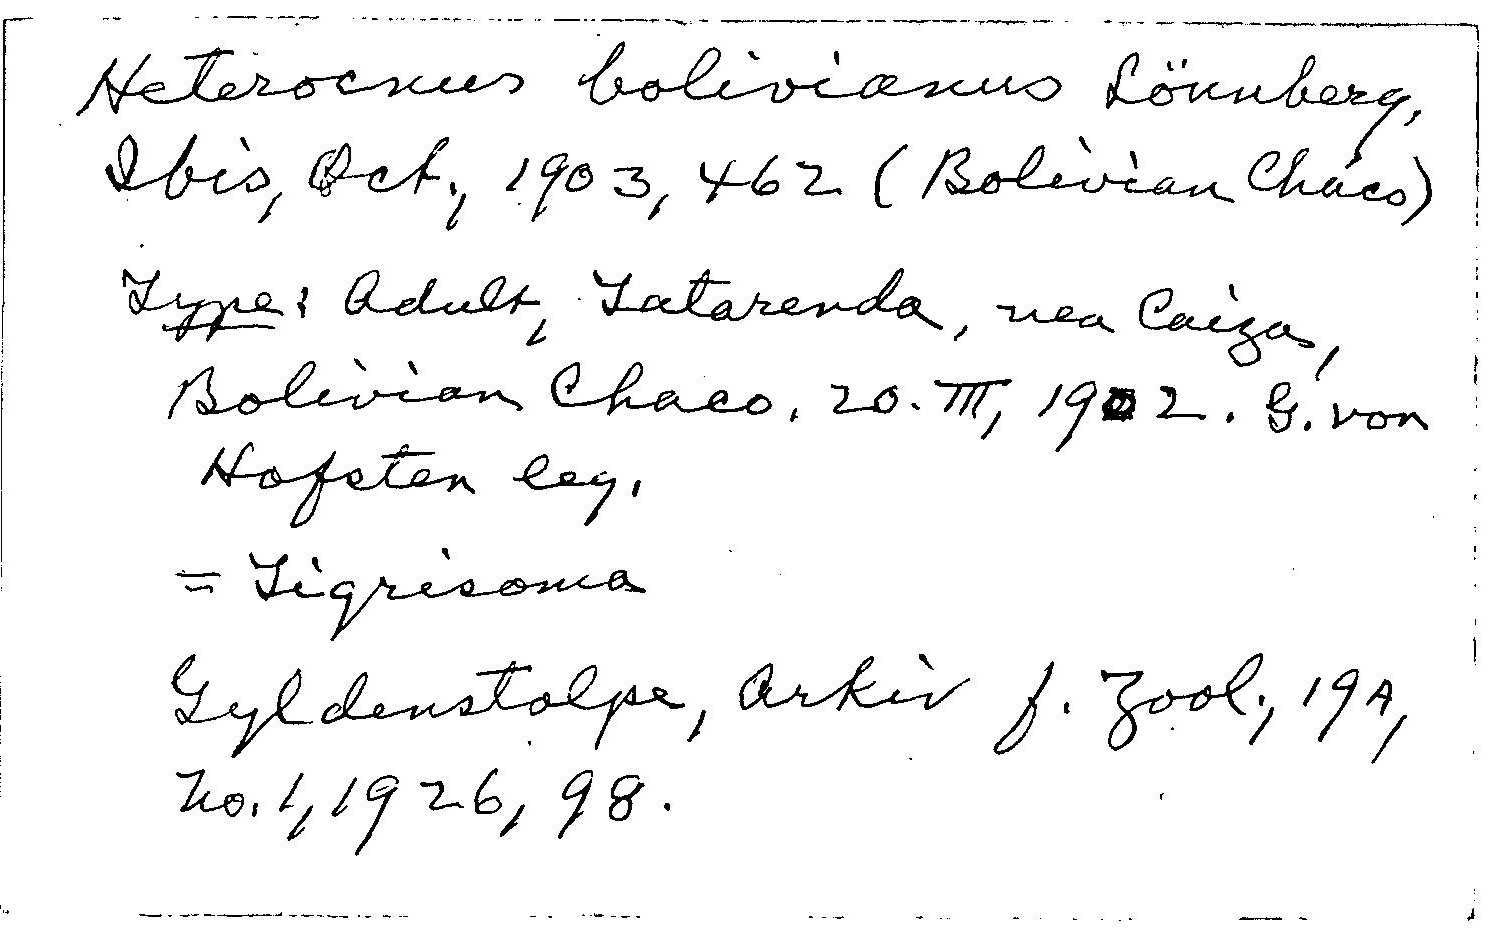 Heterocnus bolivianus Lönnberg,
Ibis, Oct., 1903, 462 (Bolivian Chaco)
Type: Adult, Tatarenda, nea Caiza,
Bolivian Chaco. 20. III, 1902. G. von
Hofsten leg.
= Tigrisoma
Gyldenstolpe, Arkiv f. Zool., 19A,
No. 1, 1926, 98.